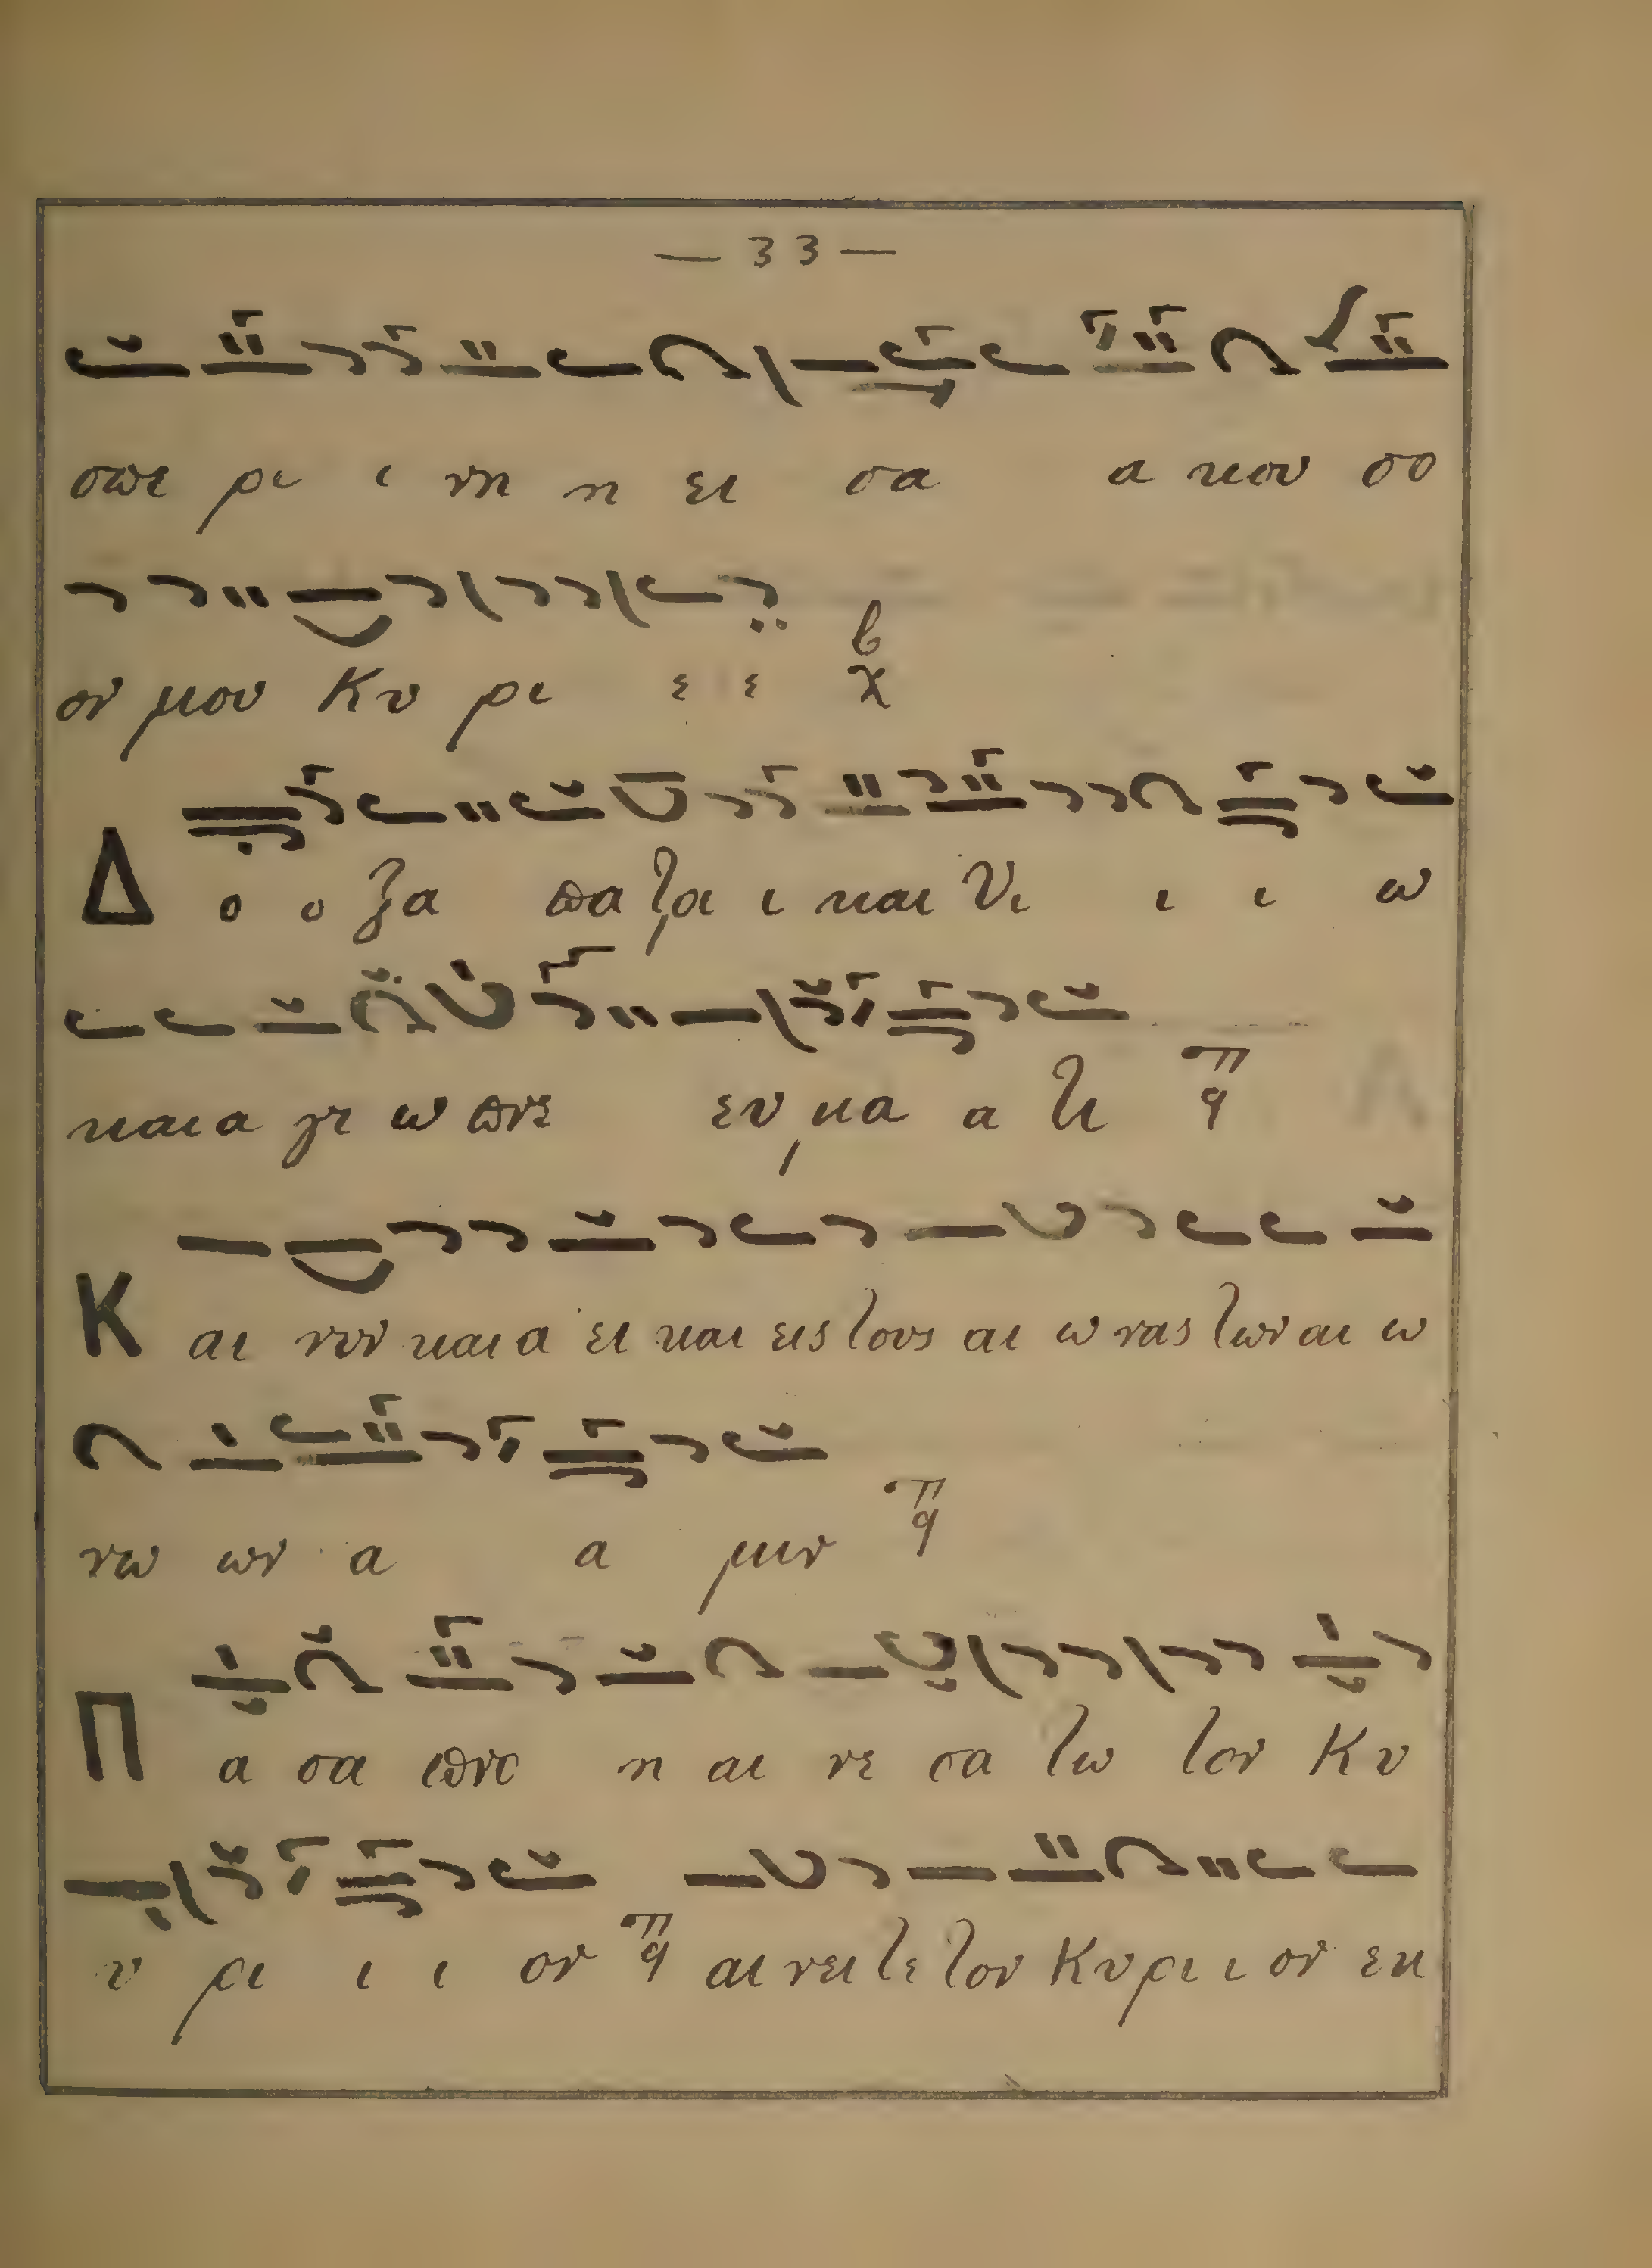 — 33 —
σπε ρι ι νη η ει σα α κου σο
ον μου Κυ ρι ε ε
Δ ο ο ξα πα τρι ι και Υι ι ι ω
και α γι ω πνε ευ μα α τι
Κ αι νυν και α ει και εις τους αι ω νας των αι ω
νω ων α α μιν
Π α σα πνο η αι νε σα τω τον Κυ
υ ρι ι ι ον αι νει τε τον Κυ ρι ι ον εκ